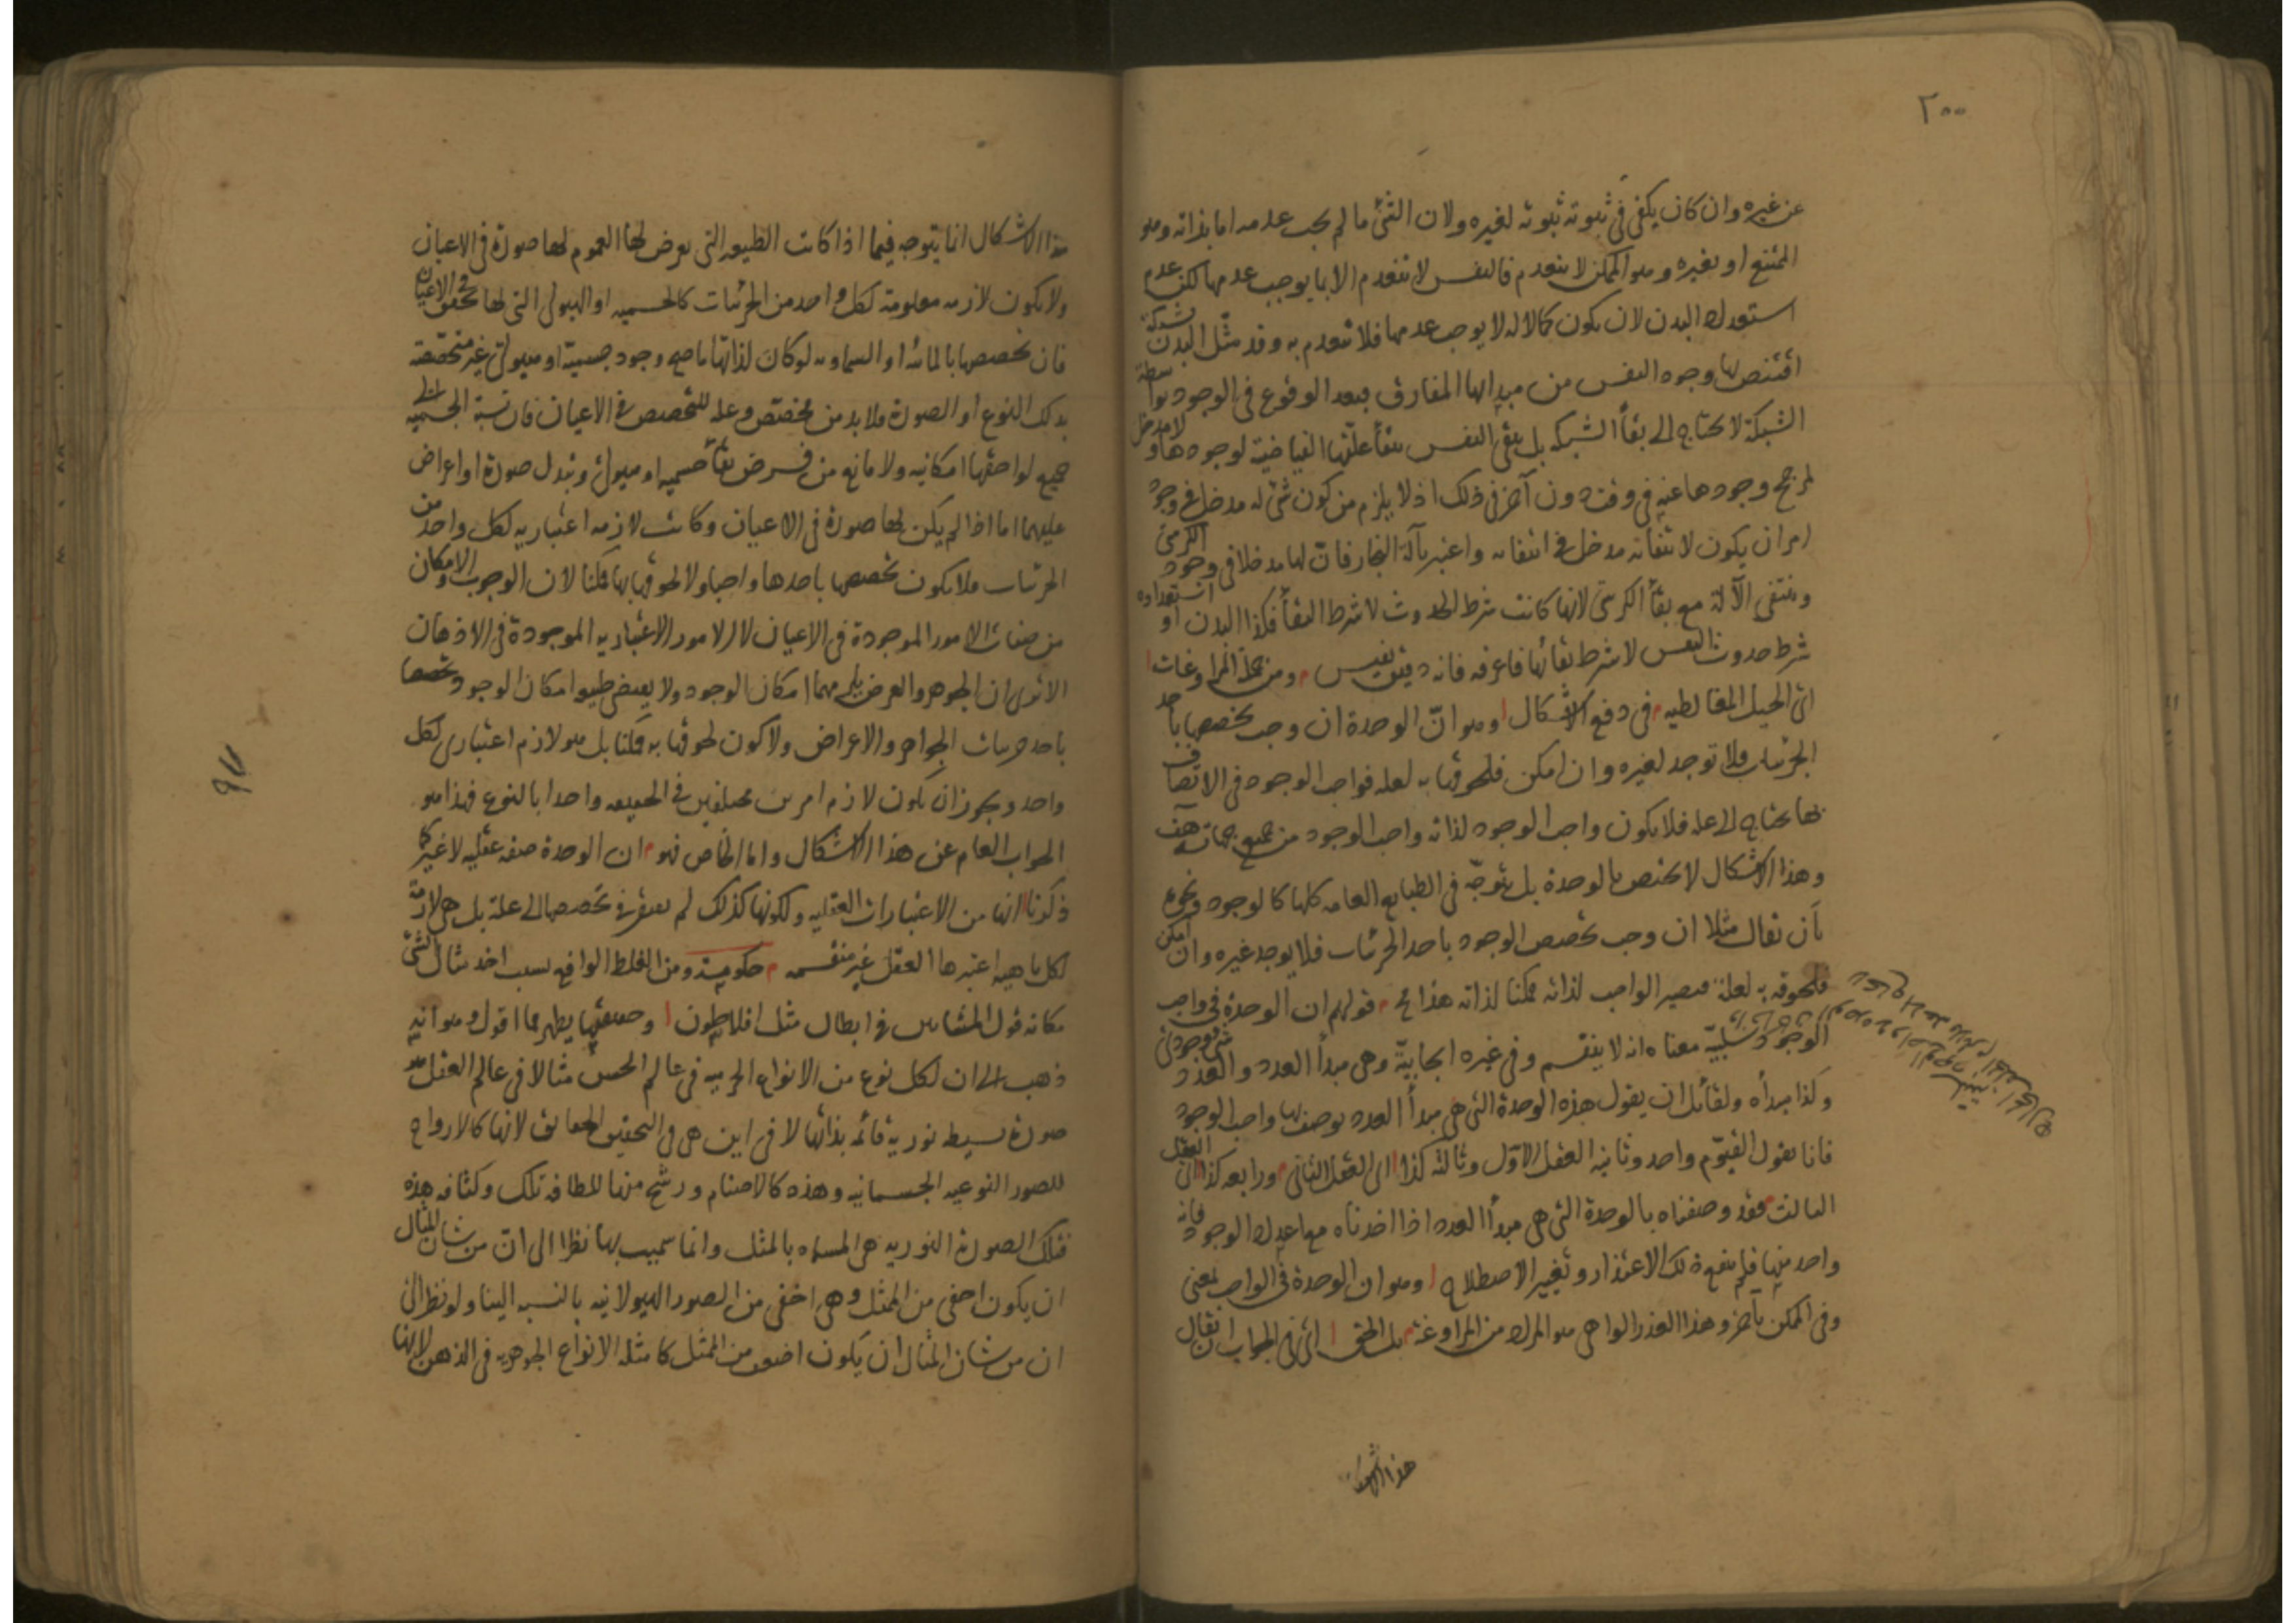 ٢٠٠
عن غيره وان كان يكفى فى ثبوته ثبوته لغيره ولان الشئ ما لم يجب عدمه اما بذاته وهو
الممتنع او بغيره وهو الممكن لا ينعدم فالنفس لا تنعدم الا بما يوجب عدمها لكن عدم
استعداد البدن لان يكون كمالا له لا يوجب عدمها فلا تنعدم به وقد مثّل البدن بشبكة
اقتنص بها وجود النفس من مبدإها المفارق فبعد الوقوع فى الوجود بواسطة
الشبكة لا يحتاج الى بقاء الشبكة بل يبقى النفس ببقاء علتها الفياضية لوجودها ولا مدخل
لمرجح وجودها عنه فى وقت دون آخر فى ذلك اذ لا يلزم من كون شئ له مدخل فى وجود
امر ان يكون لانتفائه مدخل فى انتفائه واعتبر بآلة النجار فان لها مدخلا فى وجود الكرسى
وينتفى الآلة مع بقاء الكرسى لانها كانت شرط الحدوث لا شرط البقاء فكذا البدن او استعداده
شرط حدوث النفس لا شرط بقائها فاعرفه فانه دقيق نفيس م ومن جملة المراوغات ا
اى الحيل المغالطيه م فى دفع الاشكال ا وهو انّ الوحدة ان وجب تخصصها باحد
الجزئيات فلا توجد لغيره وان امكن فلحوقها به لعله فواجب الوجود فى الاتصاف
بها يحتاج الى عله فلا يكون واجب الوجود لذاته واجب الوجود من جميع جهاته هف
وهذا الاشكال لا يختص بالوحدة بل يتوجّه فى الطبايع العامه كلها كالوجود ونحوه
بأن يقال مثلا ان وجب تخصص الوجود باحد الجزئيات فلا يوجد غيره وان امكن
فلحوقه به لعلة فيصير الواجب لذاته ممكنا لذاته هذا مح م قولهم ان الوحدة فى واجب
الوجود سلبيّة معناه انه لا ينقسم وفى غيره ايجابيّة وهى مبدأ العدد والعدد شئ وجودى
وكذا مبدأه ولقائل ان يقول هذه الوحدة التى هى مبدأ العدد يوصف بها واجب الوجود
فانا نقول القيّوم واحد وثانيه العقل الاول وثالثه كذا ا اى العقل الثانى م ورابعه كذا ا اى العقل
الثالث م فقد وصفناه بالوحدة التى هى مبدأ العدد اذا اخذناه مع اعداد الوجود فانه
واحد منها فلم ينفع ذلك الاعتذار وتغيير الاصطلاح ا وهو ان الوحدة فى الواجب بمعنى
وفى الممكن بآخر وهذا العذر الواهى هو المراد من المراوغة م بل الحق ا اى فى الجواب ان يقال
هذا الاشكال
هذا الاشكال انما يتوجه فيما اذا كانت الطبيعه التى يعرض لها العموم لها صورة فى الاعيان
ولا يكون لازمه معلومة لكل واحد من الجزئيات كالجسميه او الهيولى التى لها تحقق فى الاعيان
فان تخصصها بالمائيه او السماويه لو كان لذاتها ما صح وجود جسميّة او هيولى غير متخصّصة
بذلك النوع او الصورة فلا بد من مخصّص وعله للتخصص فى الاعيان فان نسبة الجسميه الى
جميع لواحقها امكانيه ولا مانع من فرض بقاء جسميه او هيولى وتبدل صورة او اعراض
عليهما اما اذا لم يكن لها صورة فى الاعيان وكانت لازمه اعتباريه لكل واحد من
الجزئيات فلا يكون تخصصها باحدها واجبا ولا لحوقها بها ممكنا لان الوجوب والامكان
من صفات الامور الموجودة فى الاعيان لا الامور الاعتباريه الموجودة فى الاذهان
الا ترى ان الجوهر والعرض يلزمهما امكان الوجود ولا يقتضى طبيعه امكان الوجود تخصصها
باحد جزئيات الجواهر والاعراض ولا كون لحوقها به ممكنا بل هو لازم اعتبارى لكل
واحد ويجوز ان يكون لازم امرين مختلفين فى الحقيقه واحدا بالنوع فهذا هو
الجواب العام عن هذا الاشكال واما الخاص فهو م ان الوحدة صفه عقليه لا غير كما
ذكرنا ا انها من الاعتبارات العقليه ولكونها كذلك لم يفتقر فى تخصصها الى علة بل هى لازمة
لكل ماهيه اعتبرها العقل غير منقسمه م حكومية ومن الغلط الواقع بسبب اخذ مثال الشئ
مكانه قول المشائين فى ابطال مثل افلاطون ا وحقيقتها يظهر مما اقول وهو انه
ذهب الى ان لكل نوع من الانواع الجرميه فى عالم الحس مثالا فى عالم العقل هو
صورة بسيطه نوريه قائمه بذاتها لا فى اين هى فى التحقيق الحقائق لانها كالارواح
للصور النوعيه الجسمانيه وهذه كالاصنام ورشح منها للطافه تلك وكثافه هذه
فتلك الصورة النوريه هى المسماه بالمثل وانما سميت بها نظرا الى انّ من شان المثال
ان يكون اخفى من الممثل وهى اخفى من الصور الهيولانيه بالنسبه الينا ولو نظر الى
ان من شان المثال ان يكون اضعف من الممثل كامثله الانواع الجوهريه فى الذهن لانها